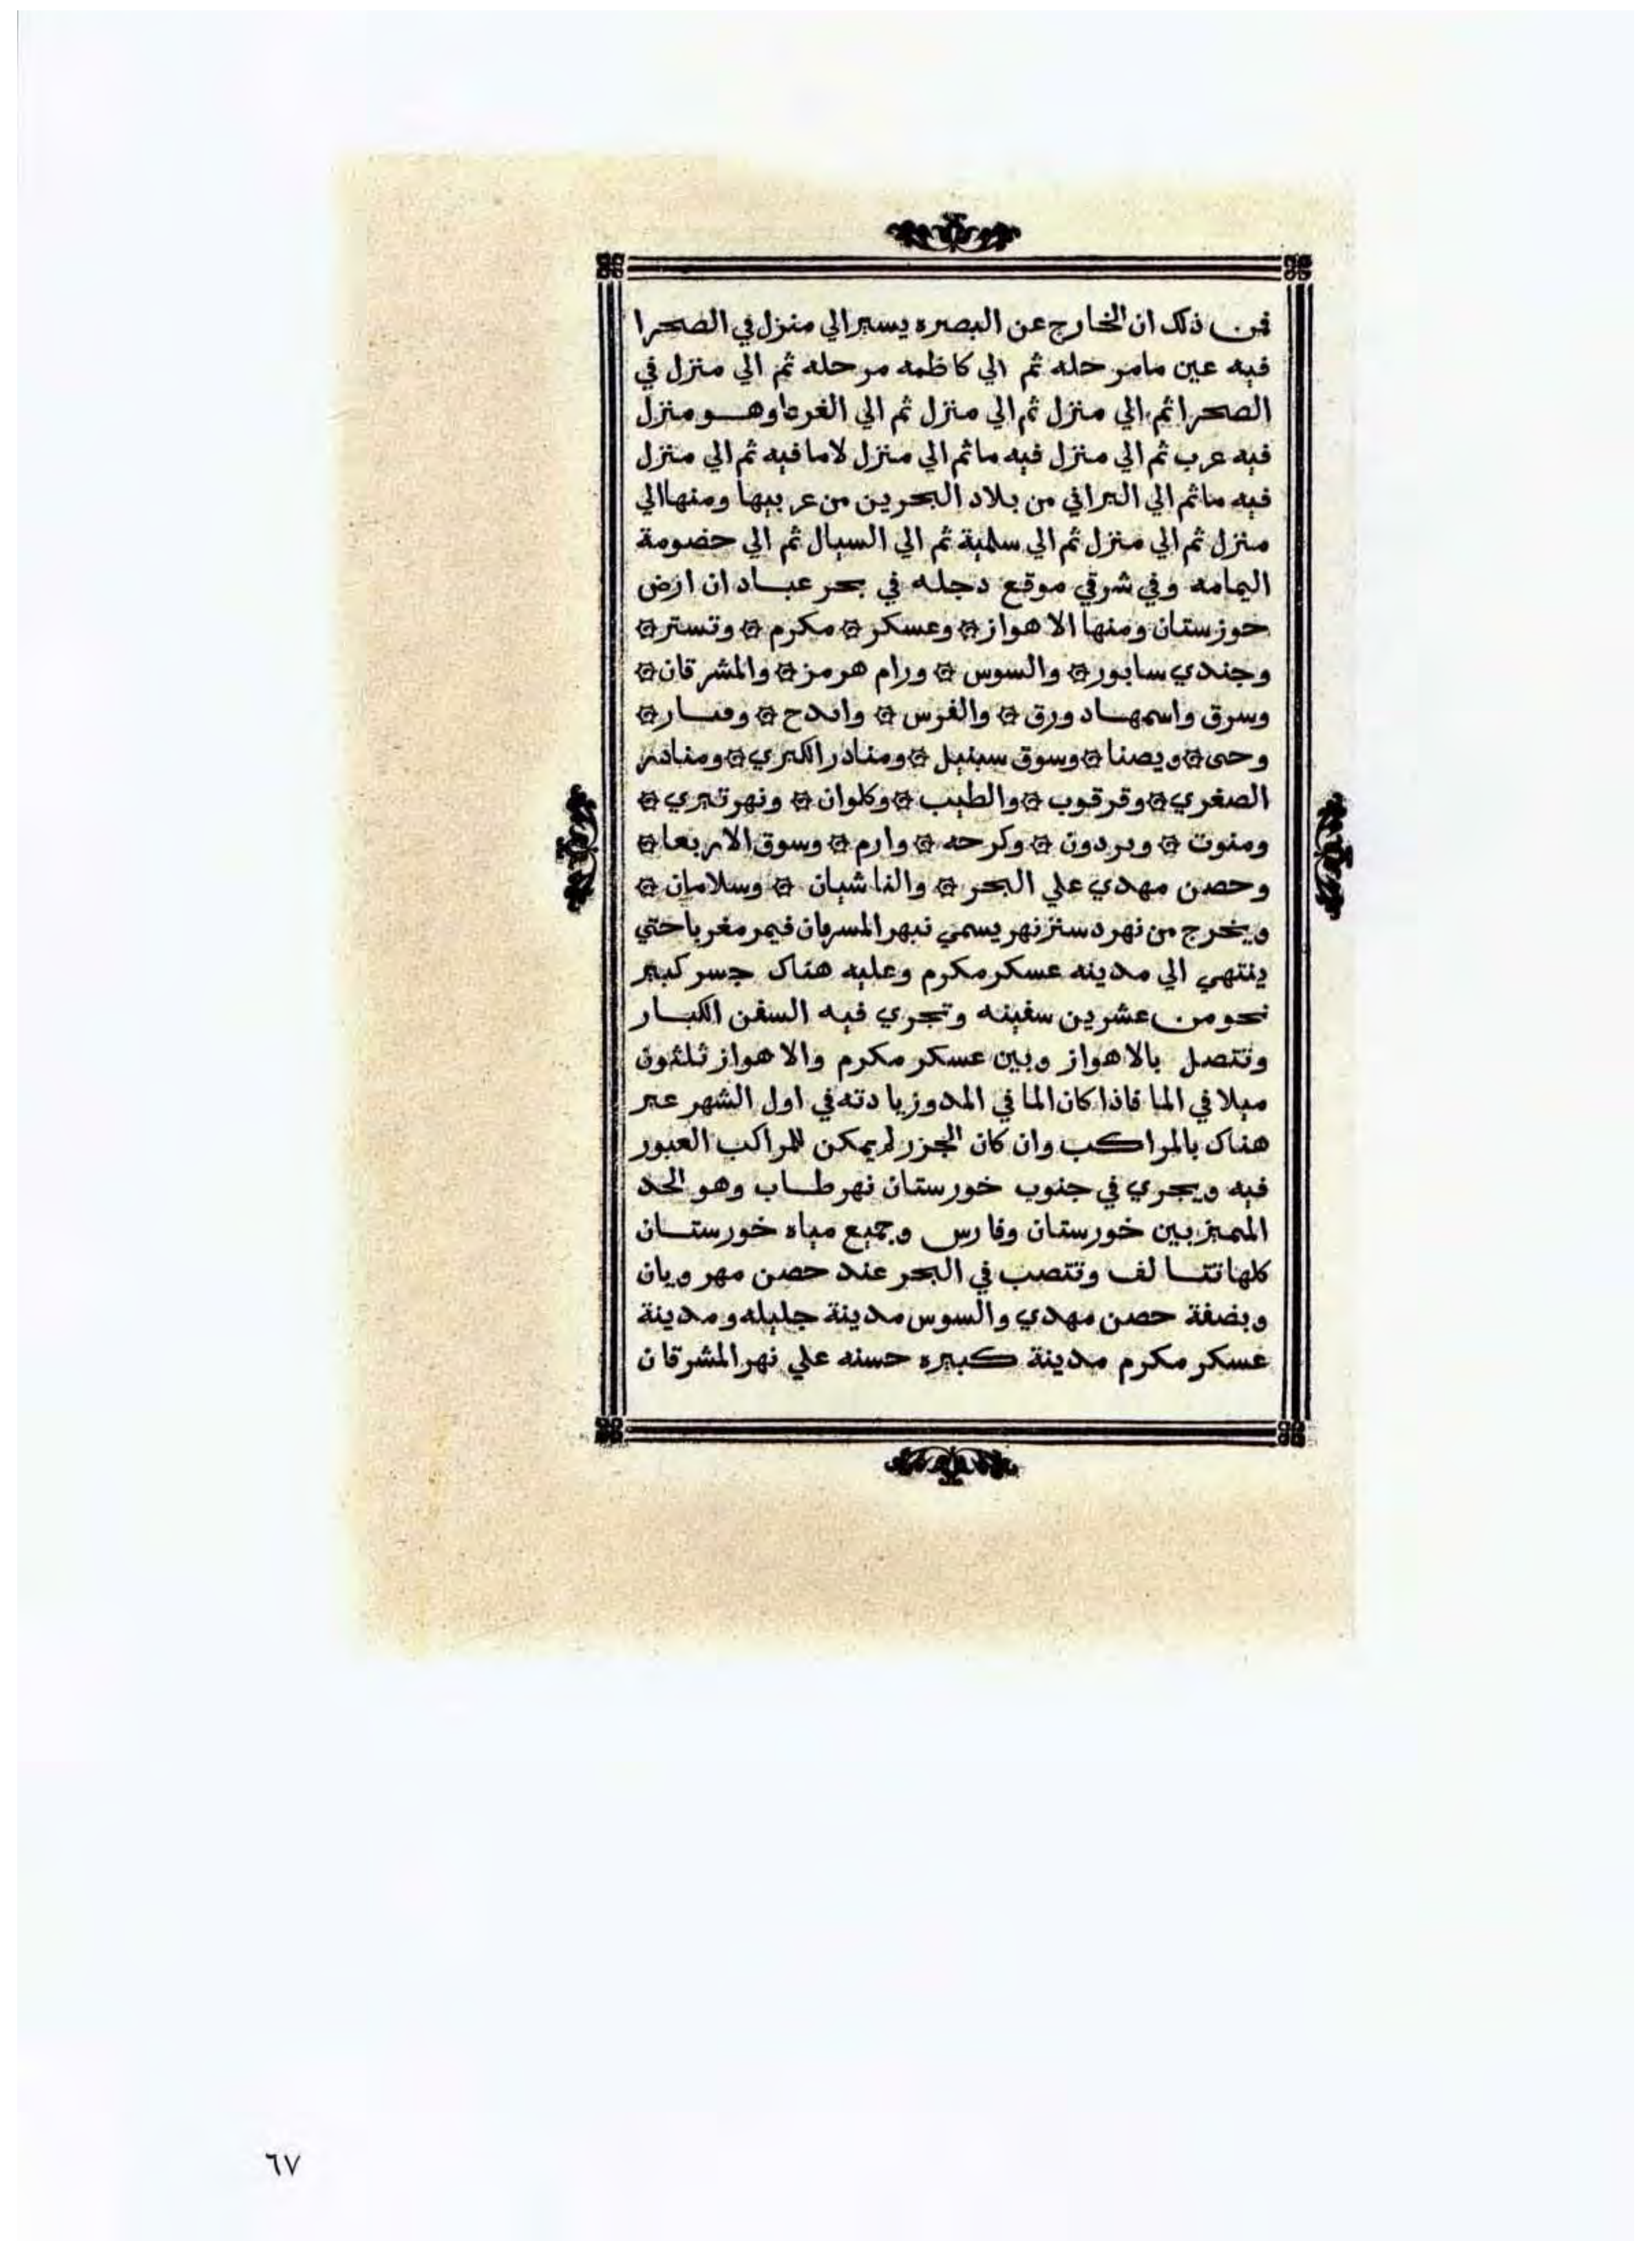 فمن ذلك ان الخارج عن البصره يسير الي منزل في الصحرا
فيه عين ما مرحله ثم الي كاظمه مرحله ثم الي منزل في
الصحرا ثم الي منزل ثم الي منزل ثم الي وهو منزل
فيه عرب ثم الي منزل فيه ما ثم الي منزل لا ما فيه ثم الي منزل
فيه ما ثم الي البراني من بلاد البحرين من عربيها ومنها الي
منزل ثم الي منزل ثم الي سلمية ثم الي السيال ثم الي حضومة
اليمامه وفي شرقي موقع دجله في بحر عبادان ارض
حوزستان ومنها الاهواز ۞ وعسكر ۞ مكرم ۞ وتستر ۞
وجندي سابور ۞ والسوس ۞ ورام هرمز ۞ والمشرقان ۞
وسرق واسمها دورق ۞ والفرس ۞ ۞ ۞
وحى ۞ ويصنا ۞ وسوق سبنيل ۞ ومنادر الكبري ۞ ومنادر
الصغري ۞ وقرقوب ۞ والطيب ۞ وكلوان ۞ ونهر تيري ۞
ومنوت ۞ وبردون ۞ وكرحه ۞ وارم ۞ وسوق الاربعا ۞
وحصن مهدي علي البحر ۞ والناشيان ۞ وسلامان ۞
ويخرج من نهر نهر يسمي نبهر فيمر مغربا حتي
ينتهي الي مدينه عسكر مكرم وعليه هناك جسر كبير
نحو من عشرين سفينه وتجري فيه السفن الكبار
وتتصل بالاهواز وبين عسكر مكرم والاهواز ثلثون
ميلا في الما فاذا كان الما في المد وزيادته في اول الشهر عبر
هناك بالمراكب وان كان الجزر لم يمكن للمراكب العبور
فيه ويجري في جنوب خورستان نهر طاب وهو الحد
المميز بين خورستان وفارس وجميع مياه خورستان
كلها تتالف وتتصب في البحر عند حصن مهرويان
وبضفة حصن مهدي والسوس مدينة جليله ومدينة
عسكر مكرم مدينة كبيره حسنه علي نهر المشرقان
٦٧